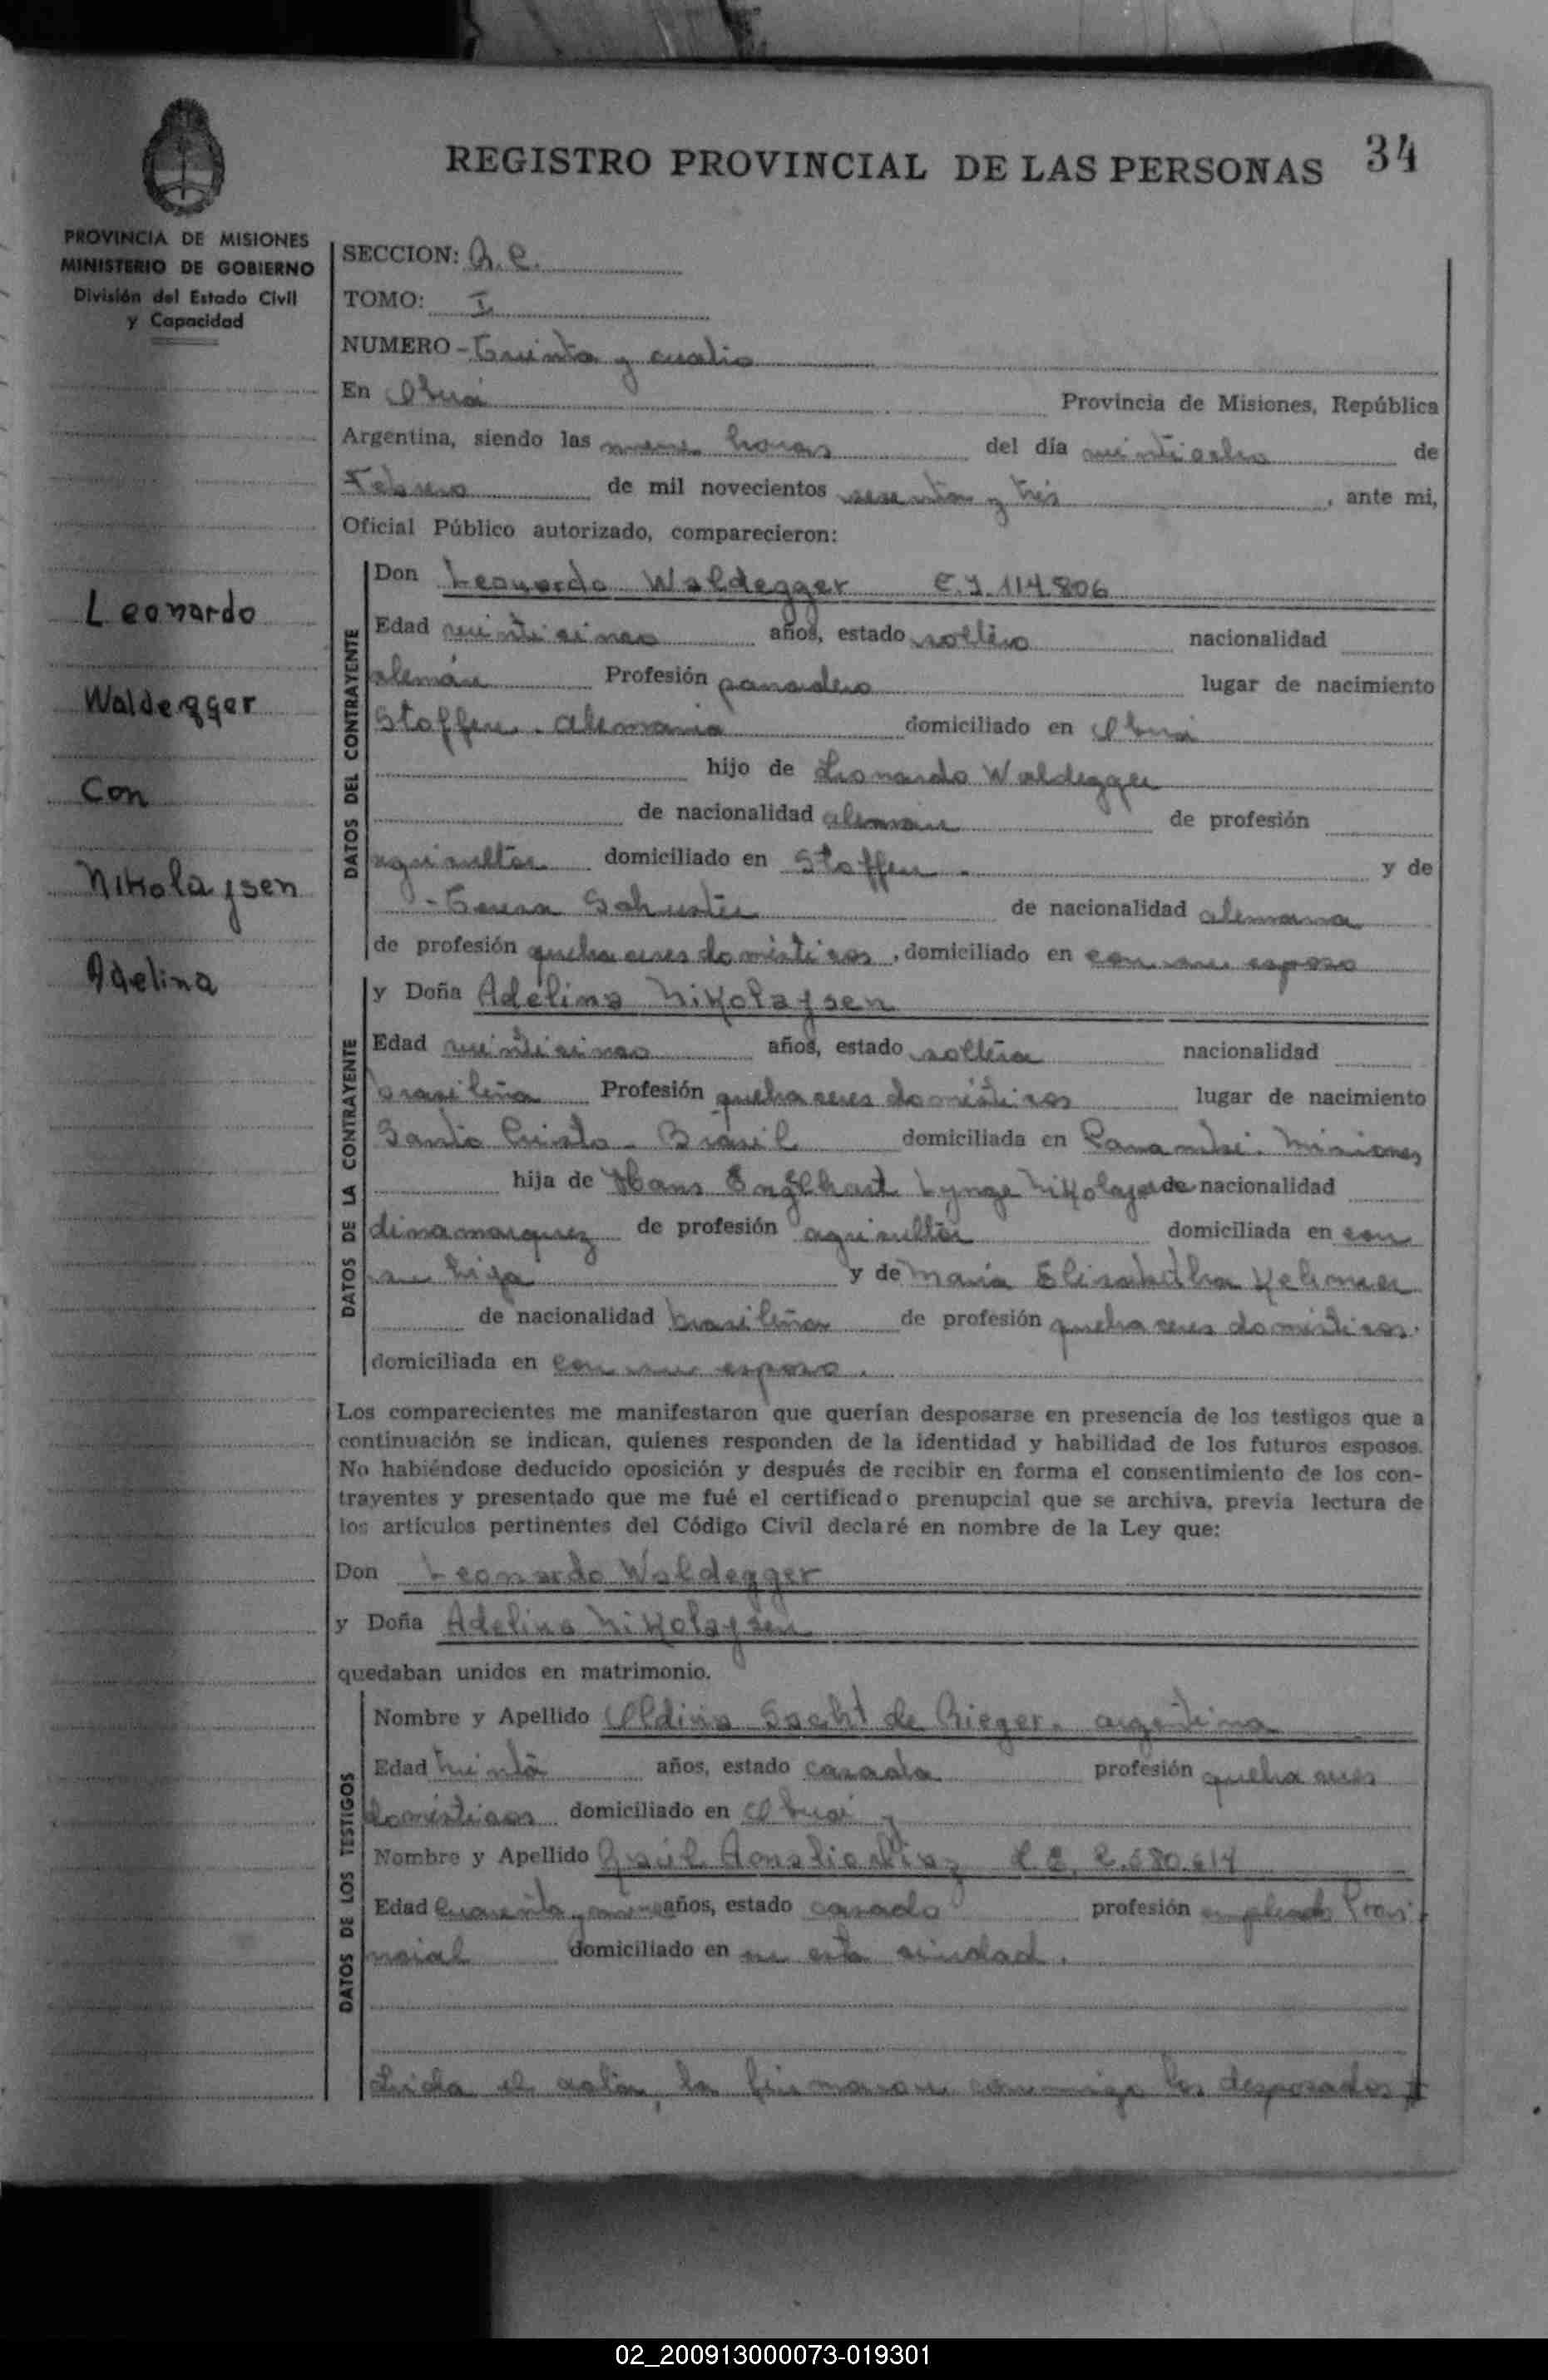 34
REGISTRO PROVINCIAL DE LAS PERSONAS
PROVINCIA DE MISIONES
MINISTERIO DE GOBIERNO
División del Estado Civil
y Capacidad
Leonardo
Waldegger
Con
Nikolaysen
Adelina
SECCION:
TOMO: I
NUMERO - Treinta y cuatro
En Oberá Provincia de Misiones, República
Argentina, siendo las nueve horas del día veintiocho de
Febrero de mil novecientos sesenta y tres, ante mi,
Oficial Público autorizado, comparecieron:
DATOS DEL CONTRAYENTE
Don Leonardo Waldegger C.I. 114.806
Edad veinticinco años, estado soltero nacionalidad
alemán Profesión panadero lugar de nacimiento
Stoffen. Alemania domiciliado en Oberá
hijo de Leonardo Waldegger
de nacionalidad alemán de profesión
agricultor domiciliado en Stoffen. y de
-Teresa Schuster de nacionalidad alemana
de profesión quehaceres domésticos, domiciliado en con su esposo
DATOS DE LA CONTRAYENTE
y Doña Adelina Nikolaysen
Edad veinticinco años, estado soltera nacionalidad
brasileña Profesión quehaceres domésticos lugar de nacimiento
Santo Cristo - Brasil domiciliada en Panambí. Misiones
hija de Hans Lynge de nacionalidad
dinamarquez de profesión agricultor domiciliada en con
su hija y de María
de nacionalidad brasileña de profesión quehaceres domésticos.
domiciliada en con su esposo.
Los comparecientes me manifestaron que querían desposarse en presencia de los testigos que a
continuación se indican, quienes responden de la identidad y habilidad de los futuros esposos.
No habiéndose deducido oposición y después de recibir en forma el consentimiento de los con-
trayentes y presentado que me fué el certificado prenupcial que se archiva, previa lectura de
los artículos pertinentes del Código Civil declaré en nombre de la Ley que:
Don Leonardo Waldegger
y Doña Adelina Nikolaysen
quedaban unidos en matrimonio.
DATOS DE LOS TESTIGOS
Nombre y Apellido de Rieger. argentina
Edad treinta años, estado casada profesión quehaceres
domésticos domiciliado en Oberá y
Nombre y Apellido L.E.
Edad cuarenta y años, estado casado profesión empleado Provin
ncial domiciliado en en esta ciudad.
Leida el acta, la firmaron conmigo los desposados y
02_200913000073-019301